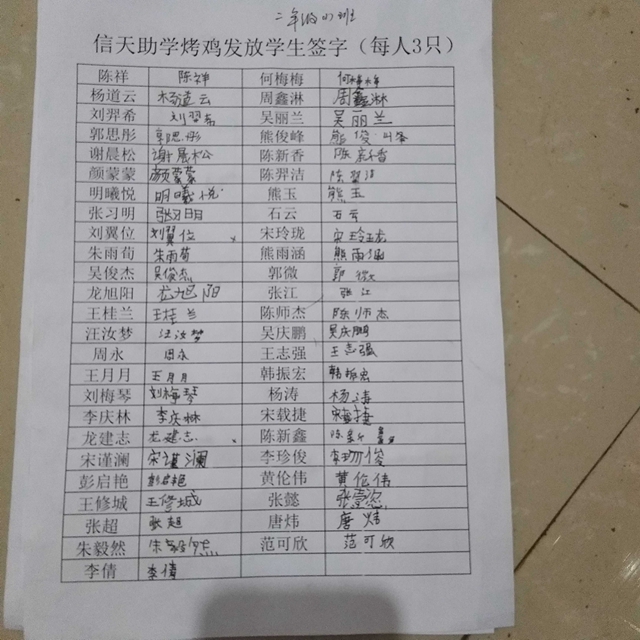 二年级(1)班
信天助学烤鸡发放学生签字（每人3只）
陈祥 陈祥 何梅梅 何梅梅
杨道云 杨道云 周鑫淋 周鑫淋
刘羿希 刘羿希 吴丽兰 吴丽兰
郭思彤 郭思彤 熊俊峰 熊俊峰
谢晨松 谢晨松 陈新香 陈新香
颜蒙蒙 颜蒙蒙 陈羿洁 陈羿洁
明曦悦 明曦悦 熊玉 熊玉
张习明 张习明 石云 石云
刘翼位 刘翼位 宋玲珑 宋玲珑
朱雨荀 朱雨荀 熊雨涵 熊雨涵
吴俊杰 吴俊杰 郭微 郭微
龙旭阳 龙旭阳 张江 张江
王桂兰 王桂兰 陈师杰 陈师杰
汪汝梦 汪汝梦 吴庆鹏 吴庆鹏
周永 周永 王志强 王志强
王月月 王月月 韩振宏 韩振宏
刘梅琴 刘梅琴 杨涛 杨涛
李庆林 李庆林 宋载捷 宋载捷
龙建志 龙建志 陈新鑫 陈新鑫
宋谨澜 宋谨澜 李珍俊 李珍俊
彭启艳 彭启艳 黄伦伟 黄伦伟
王修城 王修城 张懿 张懿
张超 张超 唐炜 唐炜
朱毅然 朱毅然 范可欣 范可欣
李倩 李倩